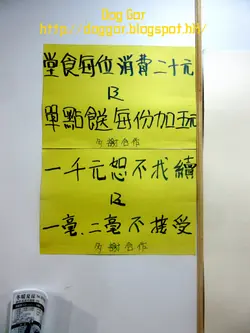 Dog Gor
http://doggor.blogspot.hk/
堂食每位消費二十元
及
單點餸每份加5元
多謝合作
一千元恕不找續
及
一毫、二毫不接受
多謝合作